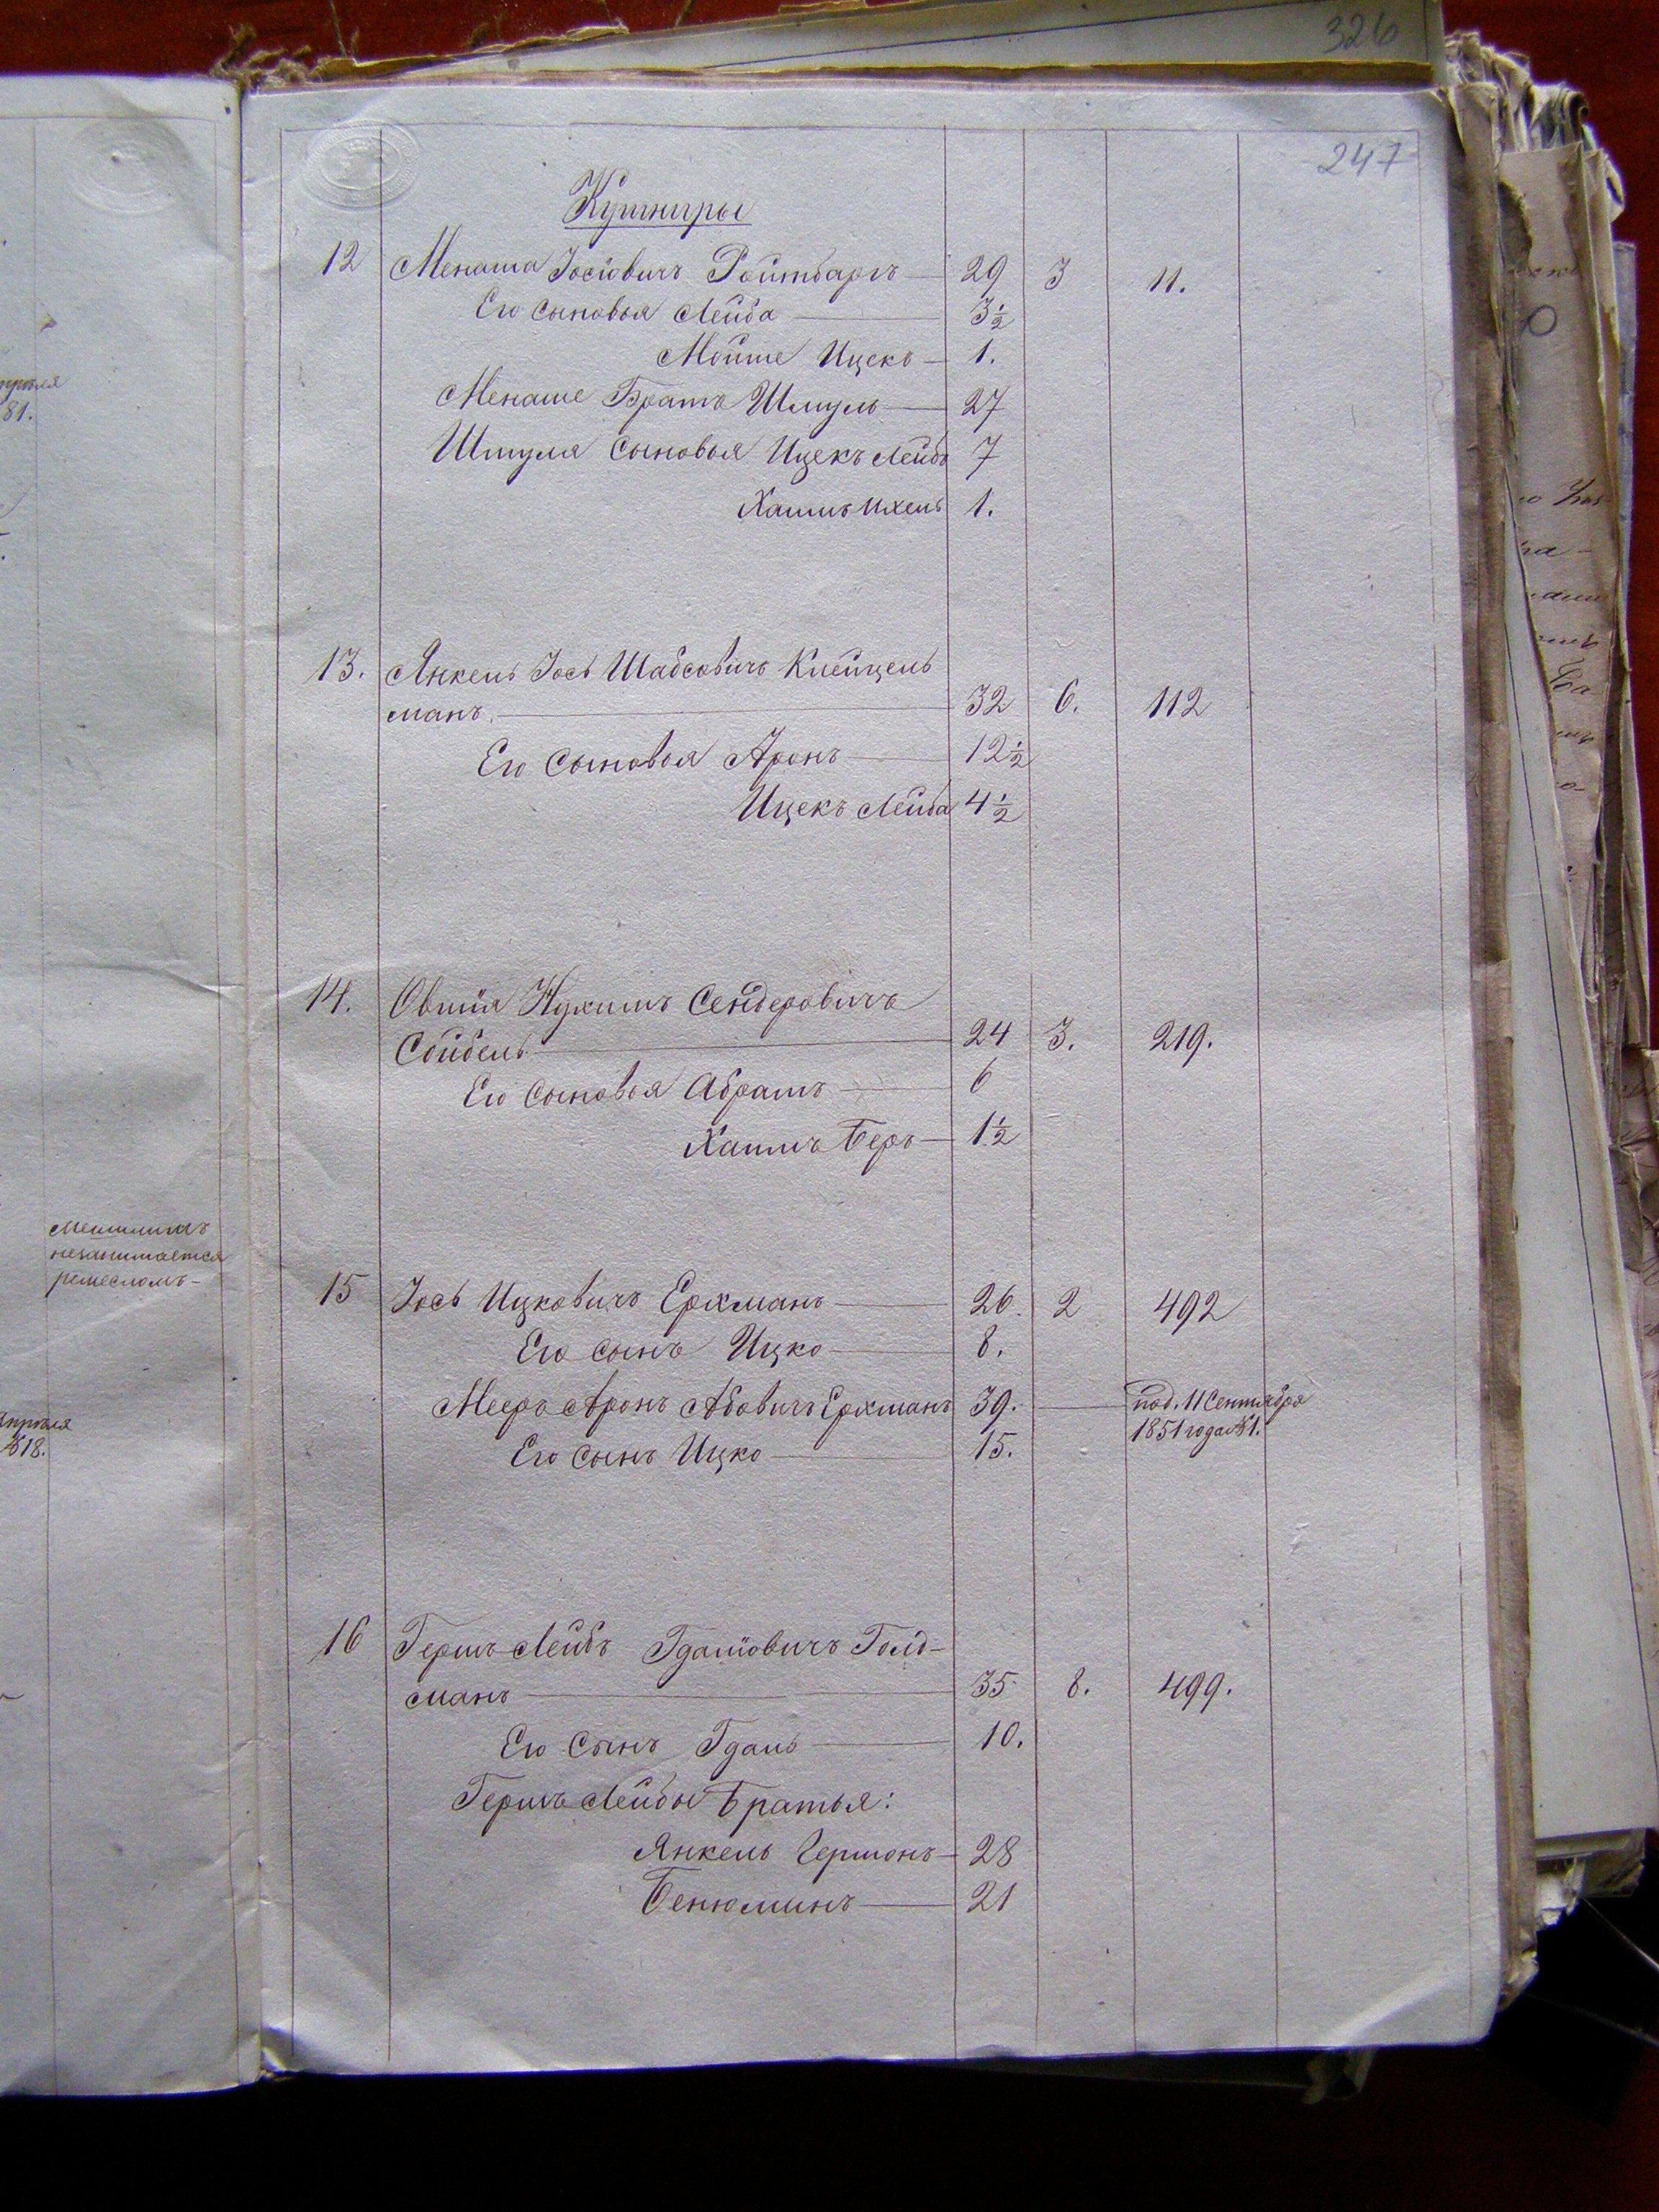 326
247
Кушниры
12 Менаша Іосіовичъ Ройтбаргъ 29 3 11.
Его сыновья Лейба 3½
Мойше Ицекъ 1.
Менаше Братъ Шмуль 27
Шмуля сыновья Ицекъ Лейбъ 7
Хаимъ Ихель 1.
13. Янкель Іось Шабсовичъ Клейцель
манъ. 32 6. 112
Его Сыновья Аронъ 12½
Ицекъ Лейба 4½
14. Овшія Нухимъ Сендеровичъ
Сойбель 24 3. 219.
Его Сыновья Абрамъ 6
Хаимъ Беръ 1½
15 Іось Ицковичъ Ерлманъ 26. 2 492
Его сынъ Ицко 8.
Мееръ Аронъ Абовичъ Ерлманъ 39. под. 11 Сентября
1851 года №1.
Его Сынъ Ицко 15.
16 Гершъ Лейбъ Гдаліовичъ Голд-
манъ 35 8. 499.
Его Сынъ Гдаль 10.
Гершъ Лейбы Братья:
Янкель Гершонъ 28
Бенюминъ 21
81.
незанимается
ремесломъ-
№18.